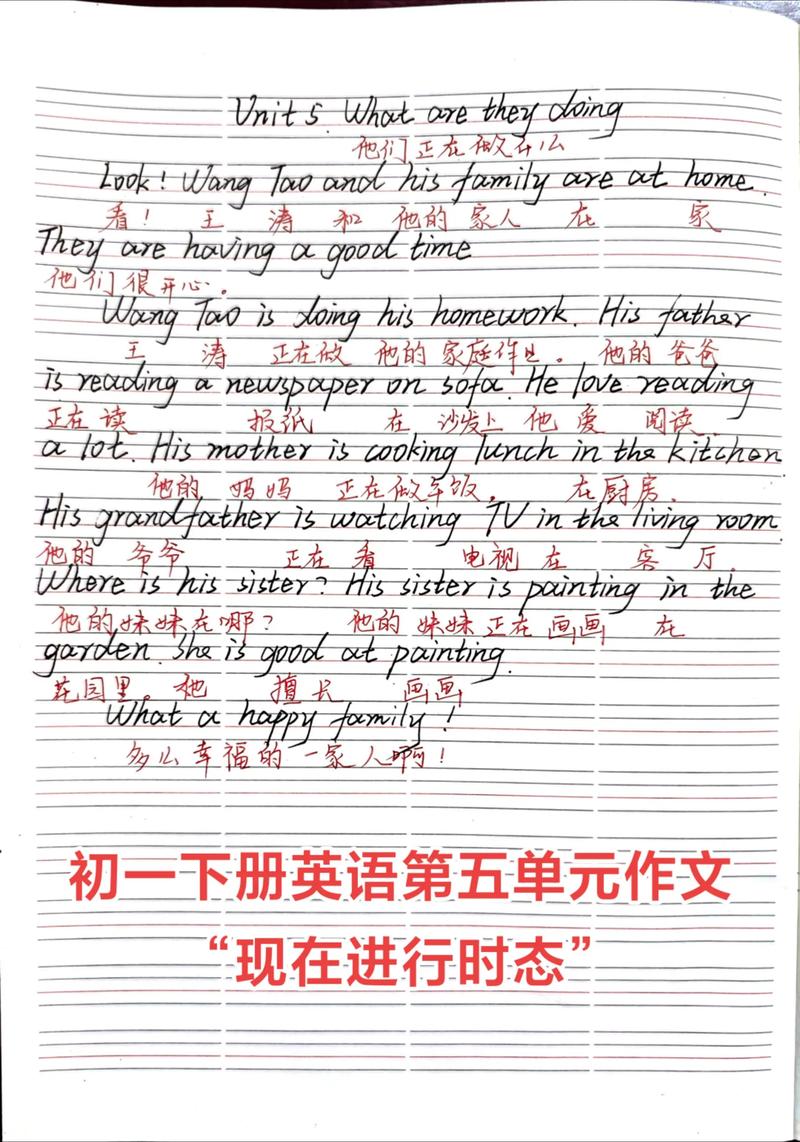 Unit 5 What are they doing
他们正在做什么
Look! Wang Tao and his family are at home.
看! 王 涛 和 他的 家人 在 家
They are having a good time
他们很开心。
Wang Tao is doing his homework. His father
王 涛 正在做 他的 家庭作业。 他的 爸爸
is reading a newspaper on sofa. He love reading
正在 读 报纸 在 沙发上 他 爱 阅读.
a lot. His mother is cooking lunch in the kitchen
他的 妈妈 正在做午饭, 在厨房.
His grandfather is watching TV in the living room.
他的 爷爷 正在 看 电视 在 客 厅.
Where is his sister? His sister is painting in the
他的妹妹在哪? 他的 妹妹 正在 画画 在
garden. She is good at painting.
花园里。她 擅长 画画
What a happy family!
多么幸福的一家人啊!
初一下册英语第五单元作文
“现在进行时态”